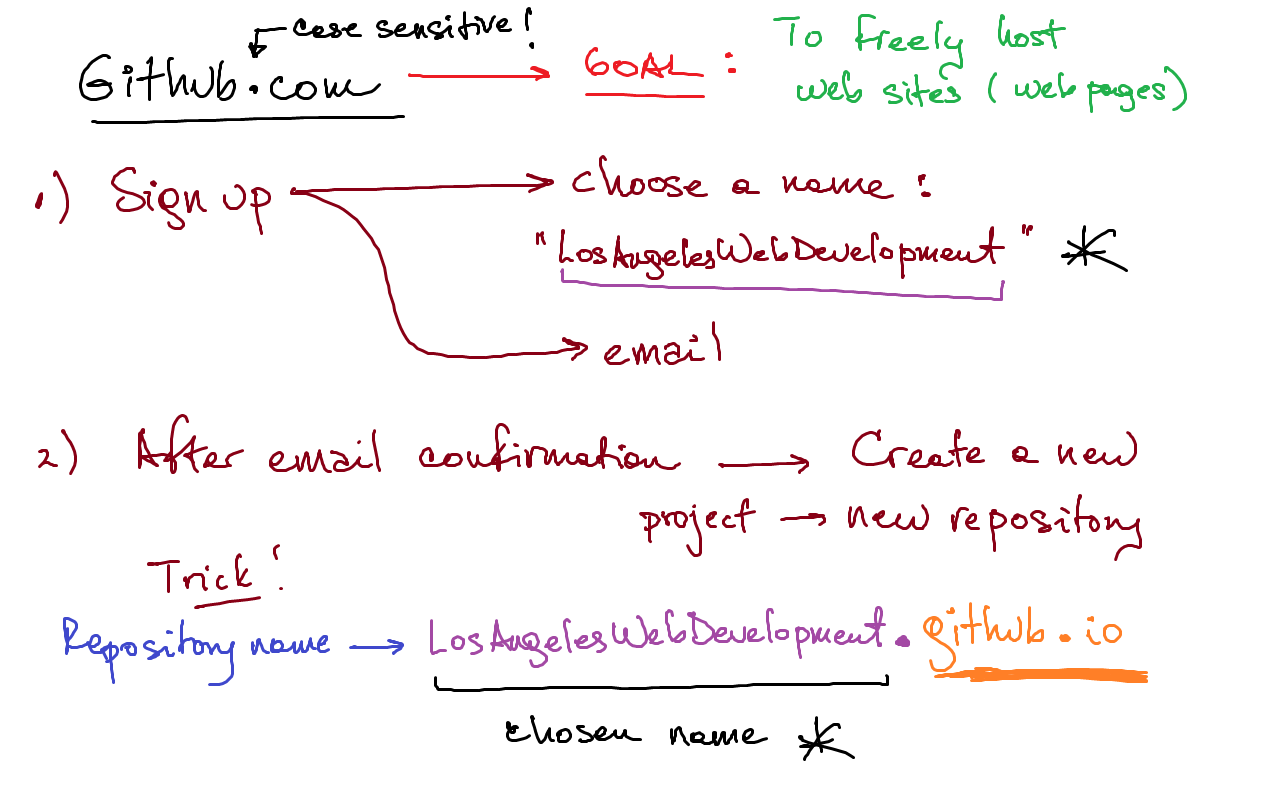 case sensitive!
Github.com → GOAL : To freely host
web sites (web pages)
1) Sign up → choose a name :
"LosAngelesWebDevelopment" *
→ email
2) After email confirmation → Create a new
project → new repository
Trick!
Repository name → LosAngelesWebDevelopment.github.io
chosen name *